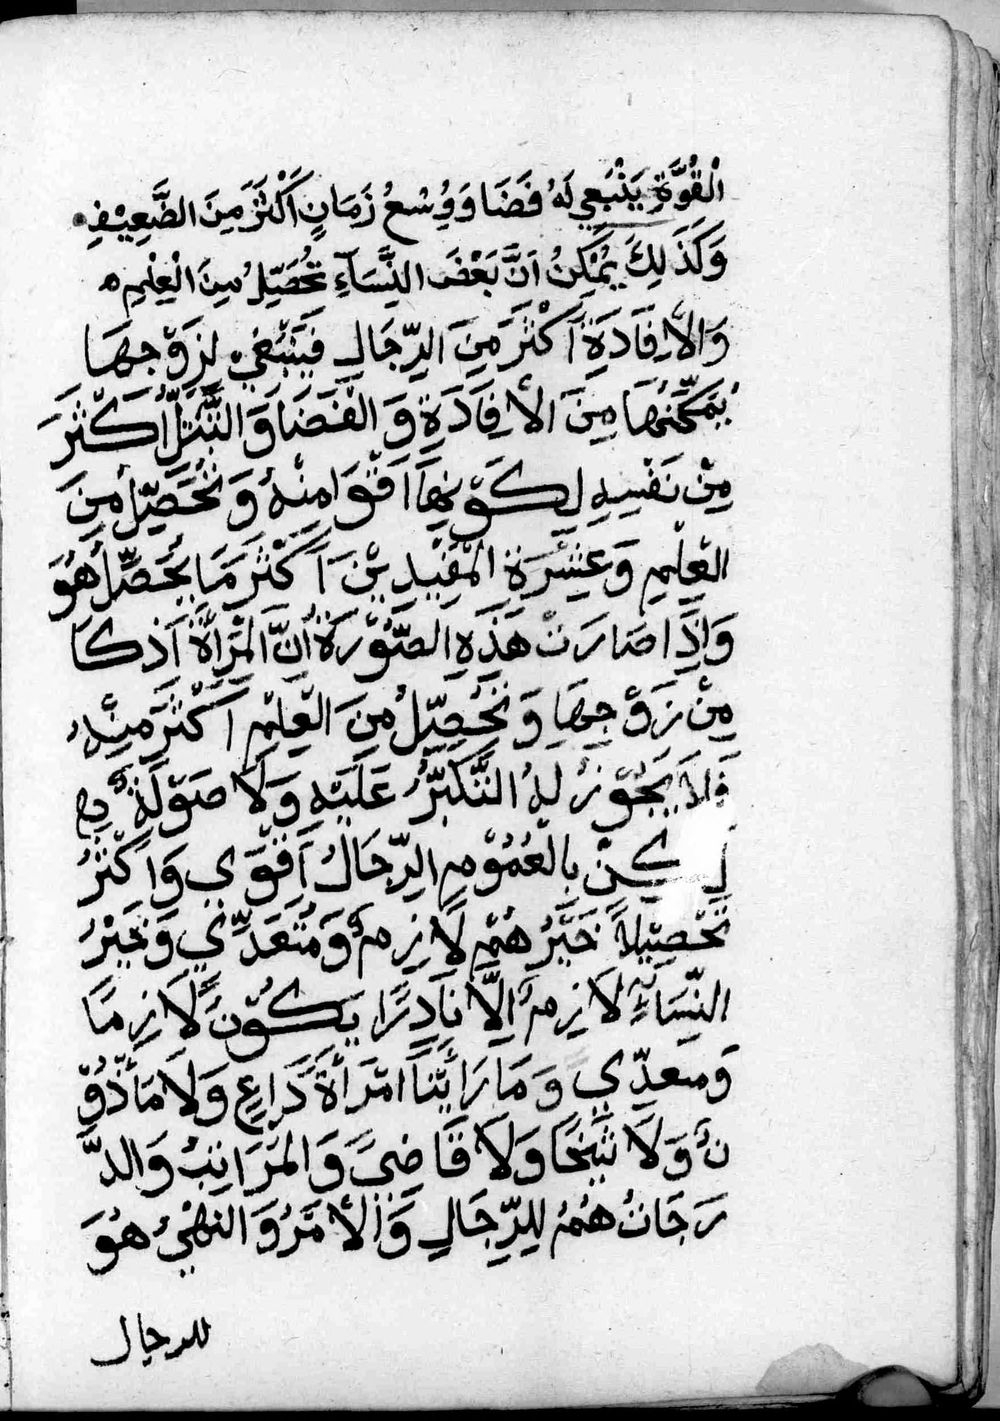 الْقُوَّةِ يَنْبَغِي لَهُ فَضَا وَوُسْعُ زَمَانٍ اَكْثَرَ مِنَ الضَّعِيْفِ
وَكَذَلِكَ يُمْكِنُ اَنَّ بَعْضَ النِّسَآءِ تُحَصِّلُ مِنَ الْعِلْمِ
وَالْاِفَادَةِ اَكْثَرَ مِنَ الرِّجَالِ فَيَنْبَغِي لِزَوْجِهَا
يُمَكِّنُهَا مِنَ الْاِفَادَةِ وَالْفَضَا وَالتَّبَتُّلِ اَكْثَرَ
مِنْ نَفْسِهِ لِكَوْنِهَا اَقْوَا مِنْهُ وَتُحَصِّلُ مِنَ
الْعِلْمِ وَعِشْرَةِ الْمُفِيْدِيْنَ اَكْثَرَ مَا يُحَصِّلُ هُوَ
وَاِذَا صَارَتْ هَذِهِ الصُّوْرَةُ اَنَّ الْمَرْأَةَ اَذْكَا
مِنْ زَوْجِهَا وَتُحَصِّلُ مِنَ الْعِلْمِ اَكْثَرَ مِنْهُ
فَلَا يَجُوْزُ لَهُ التَّكَبُّرُ عَلَيْهِ وَلَا صَوْلَةٌ بِهِ
لَكِنْ بِالْعُمُوْمِ الرِّجَالُ اَقْوَي وَاَكْثَرُ
تَحْصِيْلًا خَيْرُهُمْ لَازِمٌ وَمُتَعَدِّي وَخَيْرُ
النِّسَآءِ لَازِمٌ اِلَّا نَادِرًا يَكُوْنُ لَازِمًا
وَمعدِّي وَمَا رَأَيْنَا امْرَأَةً دَاعِ وَلَا مَأْذُوْ
نٌ وَلَا شَيْخًا وَلَا قَاضِيَ وَالْمَرَاتِبُ وَالدَّ
رَجَاتُ هُمْ لِلرِّجَالِ وَالْأَمْرُ وَالنَّهْيُ هُوَ
للرجال